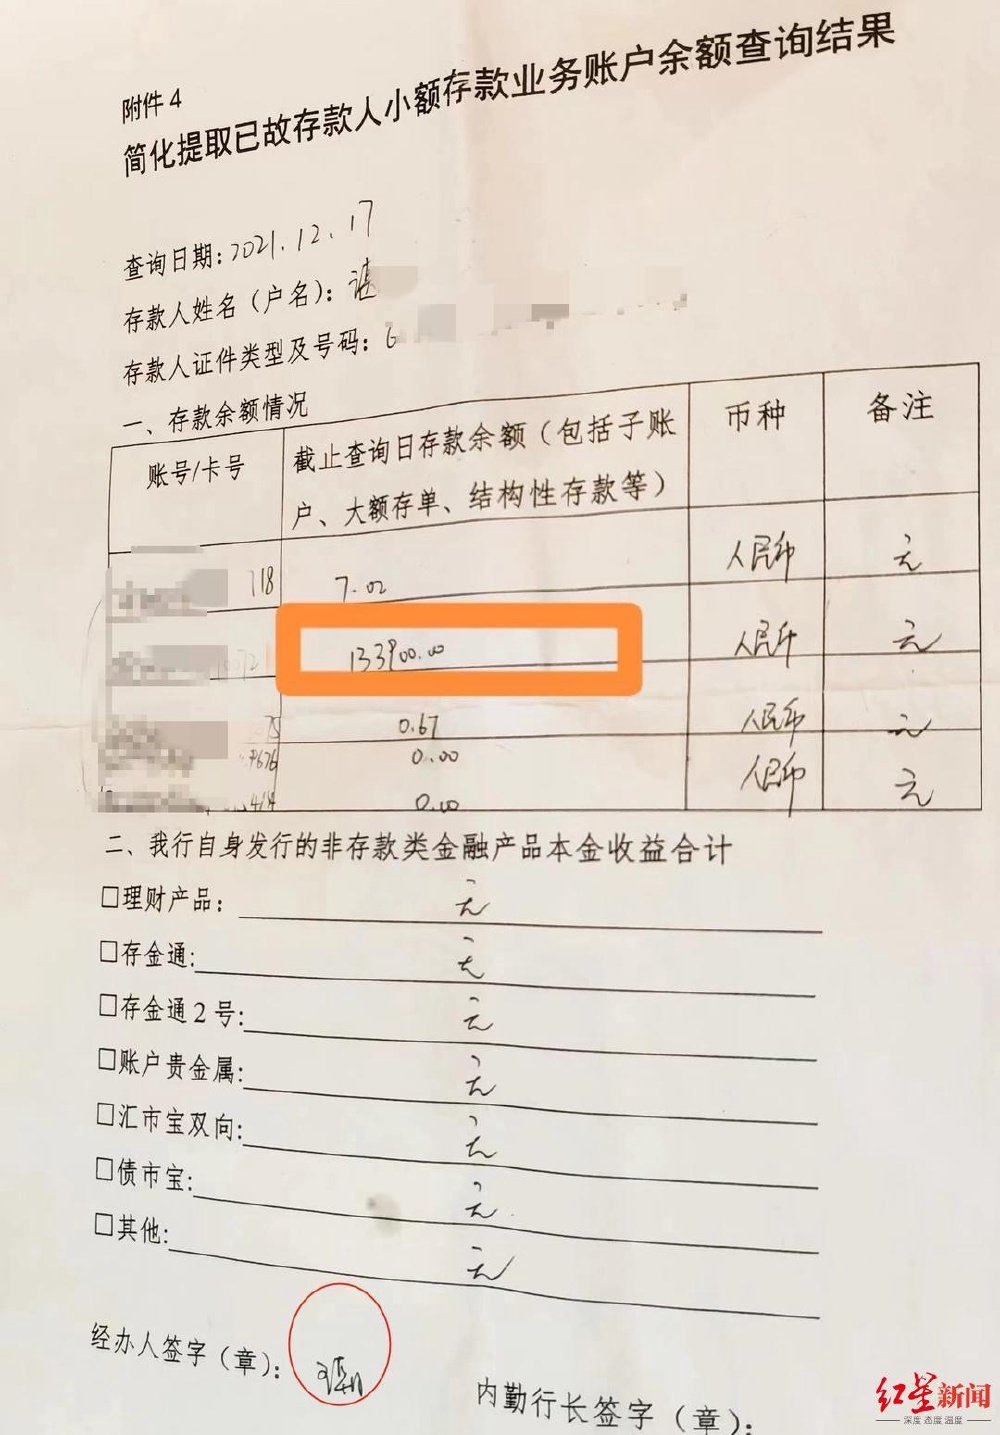 附件4
简化提取已故存款人小额存款业务账户余额查询结果
查询日期:2021.12.17
存款人姓名（户名）：谌
存款人证件类型及号码：G
一、存款余额情况
账号/卡号 截止查询日存款余额（包括子账户、大额存单、结构性存款等） 币种 备注
118 7.02 人民币 元
133900.00 人民币 元
75 0.67 人民币 元
9676 0.00 人民币 元
414 0.00
二、我行自身发行的非存款类金融产品本金收益合计
□理财产品： 元
□存金通: 元
□存金通2号: 元
□账户贵金属: 元
□汇市宝双向: 元
□债市宝: 元
□其他: 元
经办人签字（章）：
内勤行长签字（章）：
红星新闻
深度 态度 温度